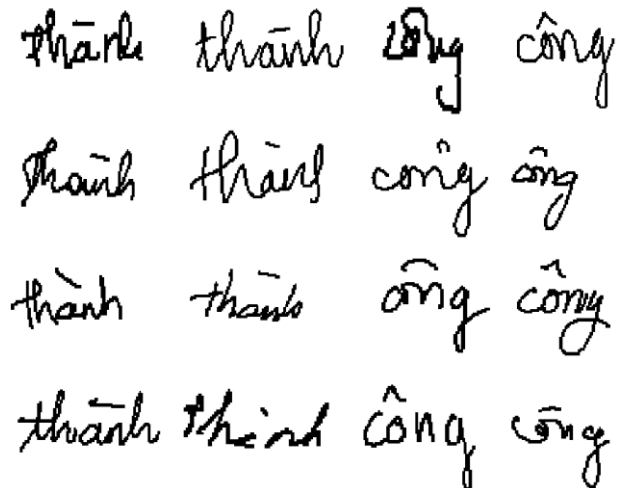 thành thành công công
thành thành công công
thành thành công công
thành thành công công